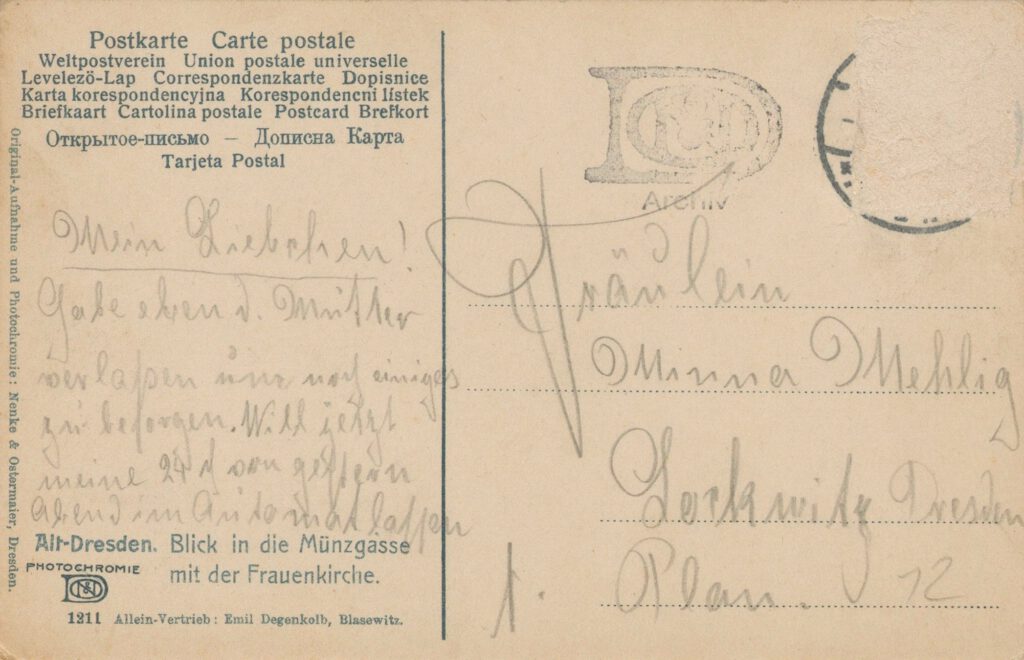 Postkarte Carte postale
Weltpostverein Union postale universelle
Levelező-Lap Correspondenzkarte Dopisnice
Karta korespondencyjna Korespondencni lístek
Briefkaart Cartolina postale Postcard Brefkort
Открытое-письмо — Дописна Карта
Tarjeta Postal
Original-Aufnahme und Photochromie: Nenke & Ostermaier, Dresden.
Mein Liebchen!
Habe eben d. Mutter
verlaßen um noch einiges
zu besorgen. Will jetzt
meine 24 von gestern
Abend im Automat laßen
Alt-Dresden. Blick in die Münzgasse
mit der Frauenkirche.
PHOTOCHROMIE
1211 Allein-Vertrieb: Emil Degenkolb, Blasewitz.
Archiv
Fräulein
Minna Mehlig
Lockwitz Dresden
1. Plan. 12